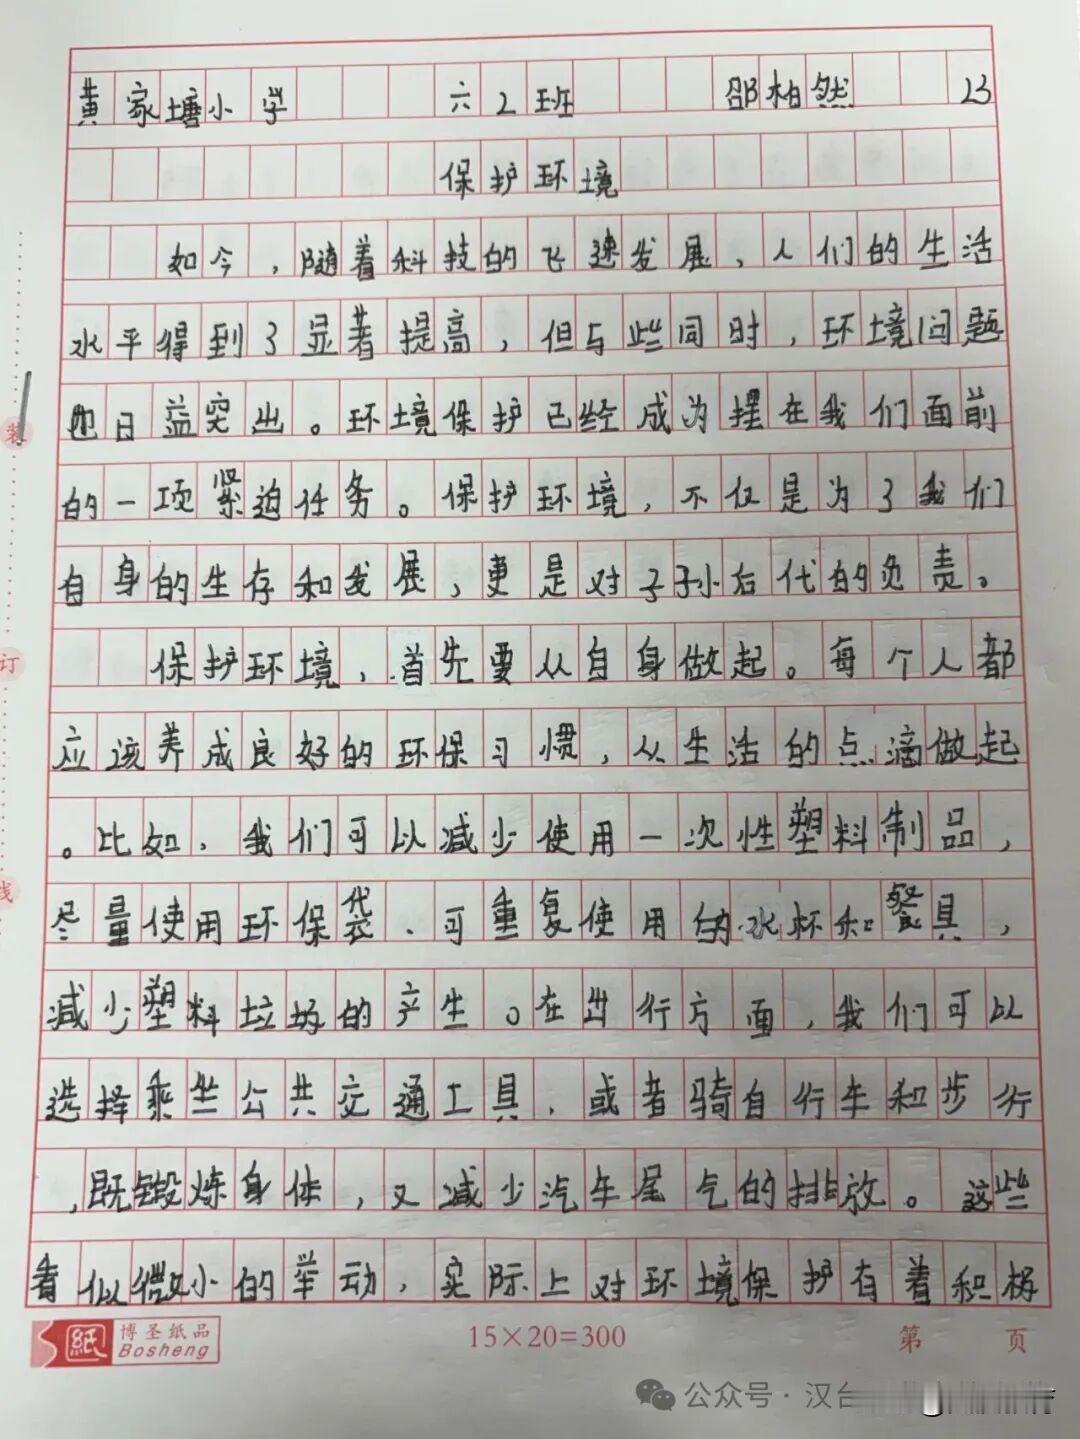 黄家塘小学 六2班 邵柏然 23
保护环境
如今，随着科技的飞速发展，人们的生活
水平得到了显著提高，但与些同时，环境问题
也日益突出。环境保护已经成为摆在我们面前
的一项紧迫任务。保护环境，不仅是为了我们
自身的生存和发展，更是对子孙后代的负责。
保护环境，首先要从自身做起。每个人都
应该养成良好的环保习惯，从生活的点滴做起
。比如，我们可以减少使用一次性塑料制品，
尽量使用环保袋、可重复使用的水杯和餐具，
减少塑料垃圾的产生。在出行方面，我们可以
选择乘坐公共交通工具，或者骑自行车和步行
，既锻炼身体，又减少汽车尾气的排放。这些
看似微小的举动，实际上对环境保护有着积极
装
订
线
紙 博圣纸品
Bosheng
15×20=300
第 页
公众号·汉台